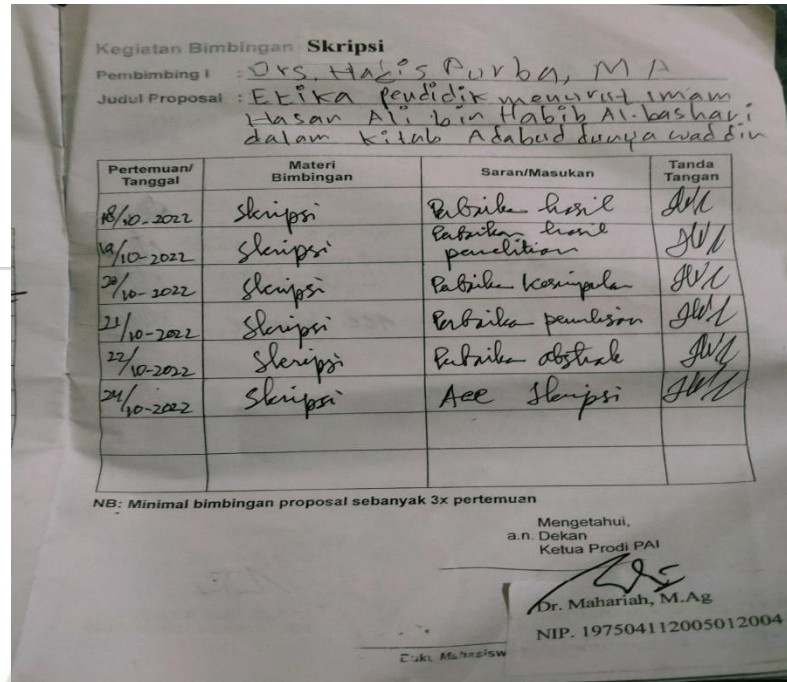 Kegiatan Bimbingan Skripsi
Pembimbing I : Drs. Hacis Purba, MA
Judul Proposal : Etika Pendidik menurut imam
Hasan Ali bin Habib Al-bashari
dalam kitab Adabud dunya waddin
Pertemuan/ Tanggal Materi Bimbingan Saran/Masukan Tanda Tangan
18/10-2022 Skripsi Perbaika hasil
19/10-2022 Skripsi Perbaikan hasil penelitian
20/10-2022 Skripsi Perbaika kesimpulan
21/10-2022 Skripsi Perbaika penulisan
22/10-2022 Skripsi Perbaika abstrak
24/10-2022 Skripsi Acc Skripsi
NB: Minimal bimbingan proposal sebanyak 3x pertemuan
Mengetahui,
a.n. Dekan
Ketua Prodi PAI
Dr. Mahariah, M.Ag
NIP. 197504112005012004